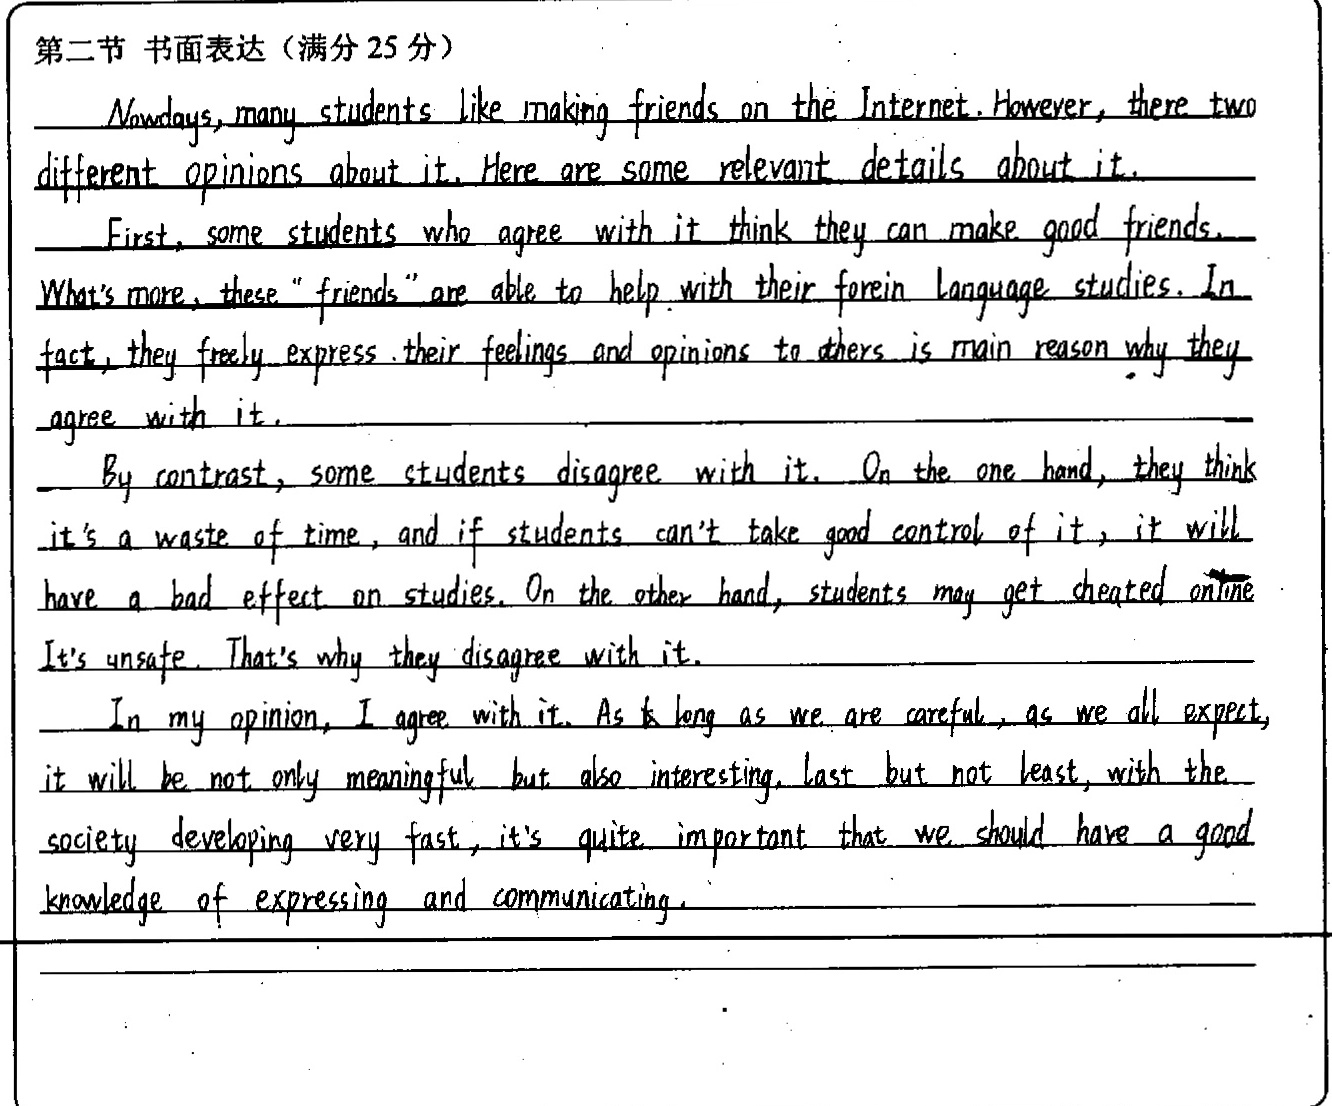 第二节 书面表达（满分 25 分）
Nowdays, many students like making friends on the Internet. However, there two
different opinions about it. Here are some relevant details about it.
First, some students who agree with it think they can make good friends.
What's more, these "friends" are able to help with their forein language studies. In
fact, they freely express their feelings and opinions to others is main reason why they
agree with it.
By contrast, some students disagree with it. On the one hand, they think
it's a waste of time, and if students can't take good control of it, it will
have a bad effect on studies. On the other hand, students may get cheated online
It's unsafe. That's why they disagree with it.
In my opinion, I agree with it. As long as we are careful, as we all expect,
it will be not only meaningful but also interesting. Last but not least, with the
society developing very fast, it's quite important that we should have a good
knowledge of expressing and communicating.